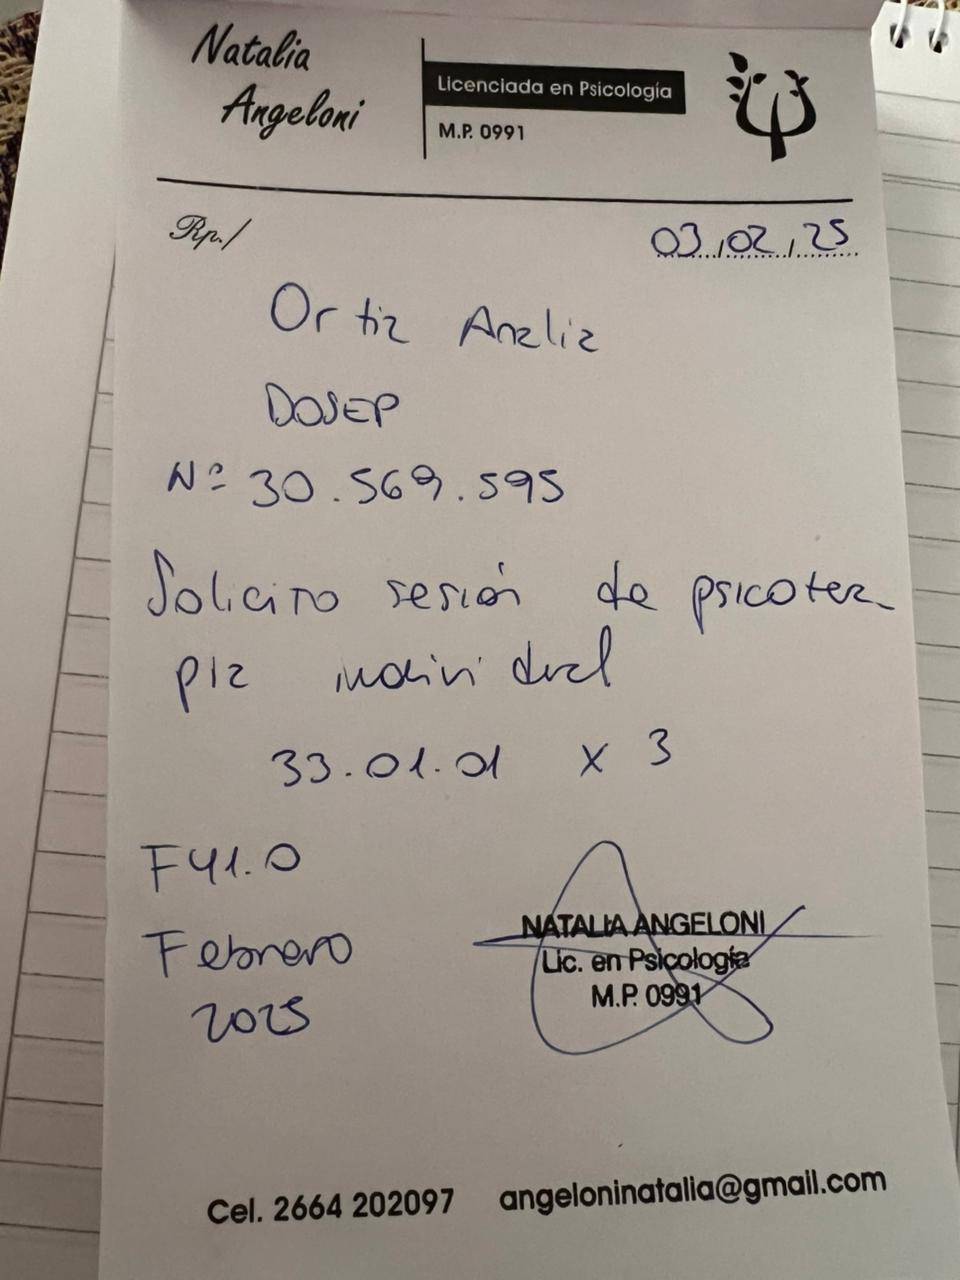 Natalia
Angeloni
Licenciada en Psicología
M.P. 0991
Rp./
03/02/25
Ortiz Analia
DOSEP
Nº 30.569.595
Solicito sesión de psicotera
pia individual
33.01.01 x 3
F41.0
Febrero
2025
NATALIA ANGELONI
Lic. en Psicología
M.P. 0991
Cel. 2664 202097 angeloninatalia@gmail.com